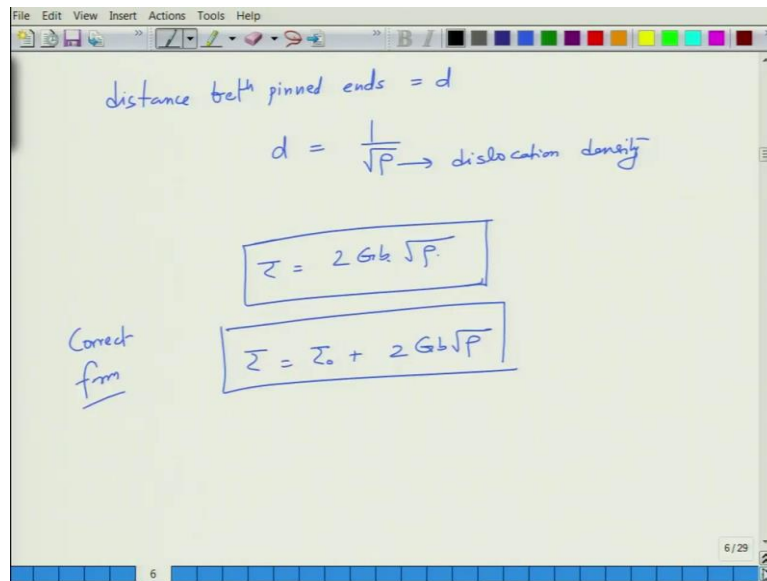 File Edit View Insert Actions Tools Help
distance betⁿ pinned ends = d
d = 1/√ρ → dislocation density
τ = 2Gb√ρ
Correct form
τ = τ₀ + 2Gb√ρ
6/29
6